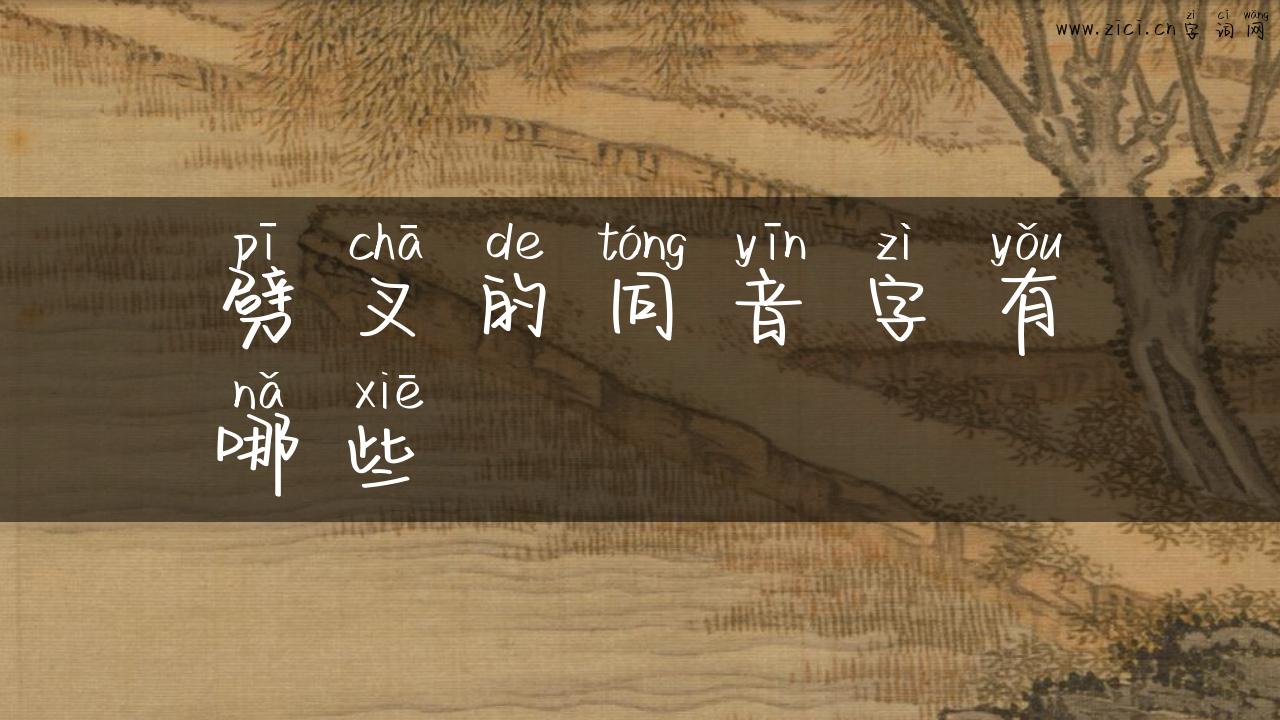 zì cí wǎng
www.zici.cn字词网
pī chā de tóng yīn zì yǒu
劈叉的同音字有
nǎ xiē
哪些